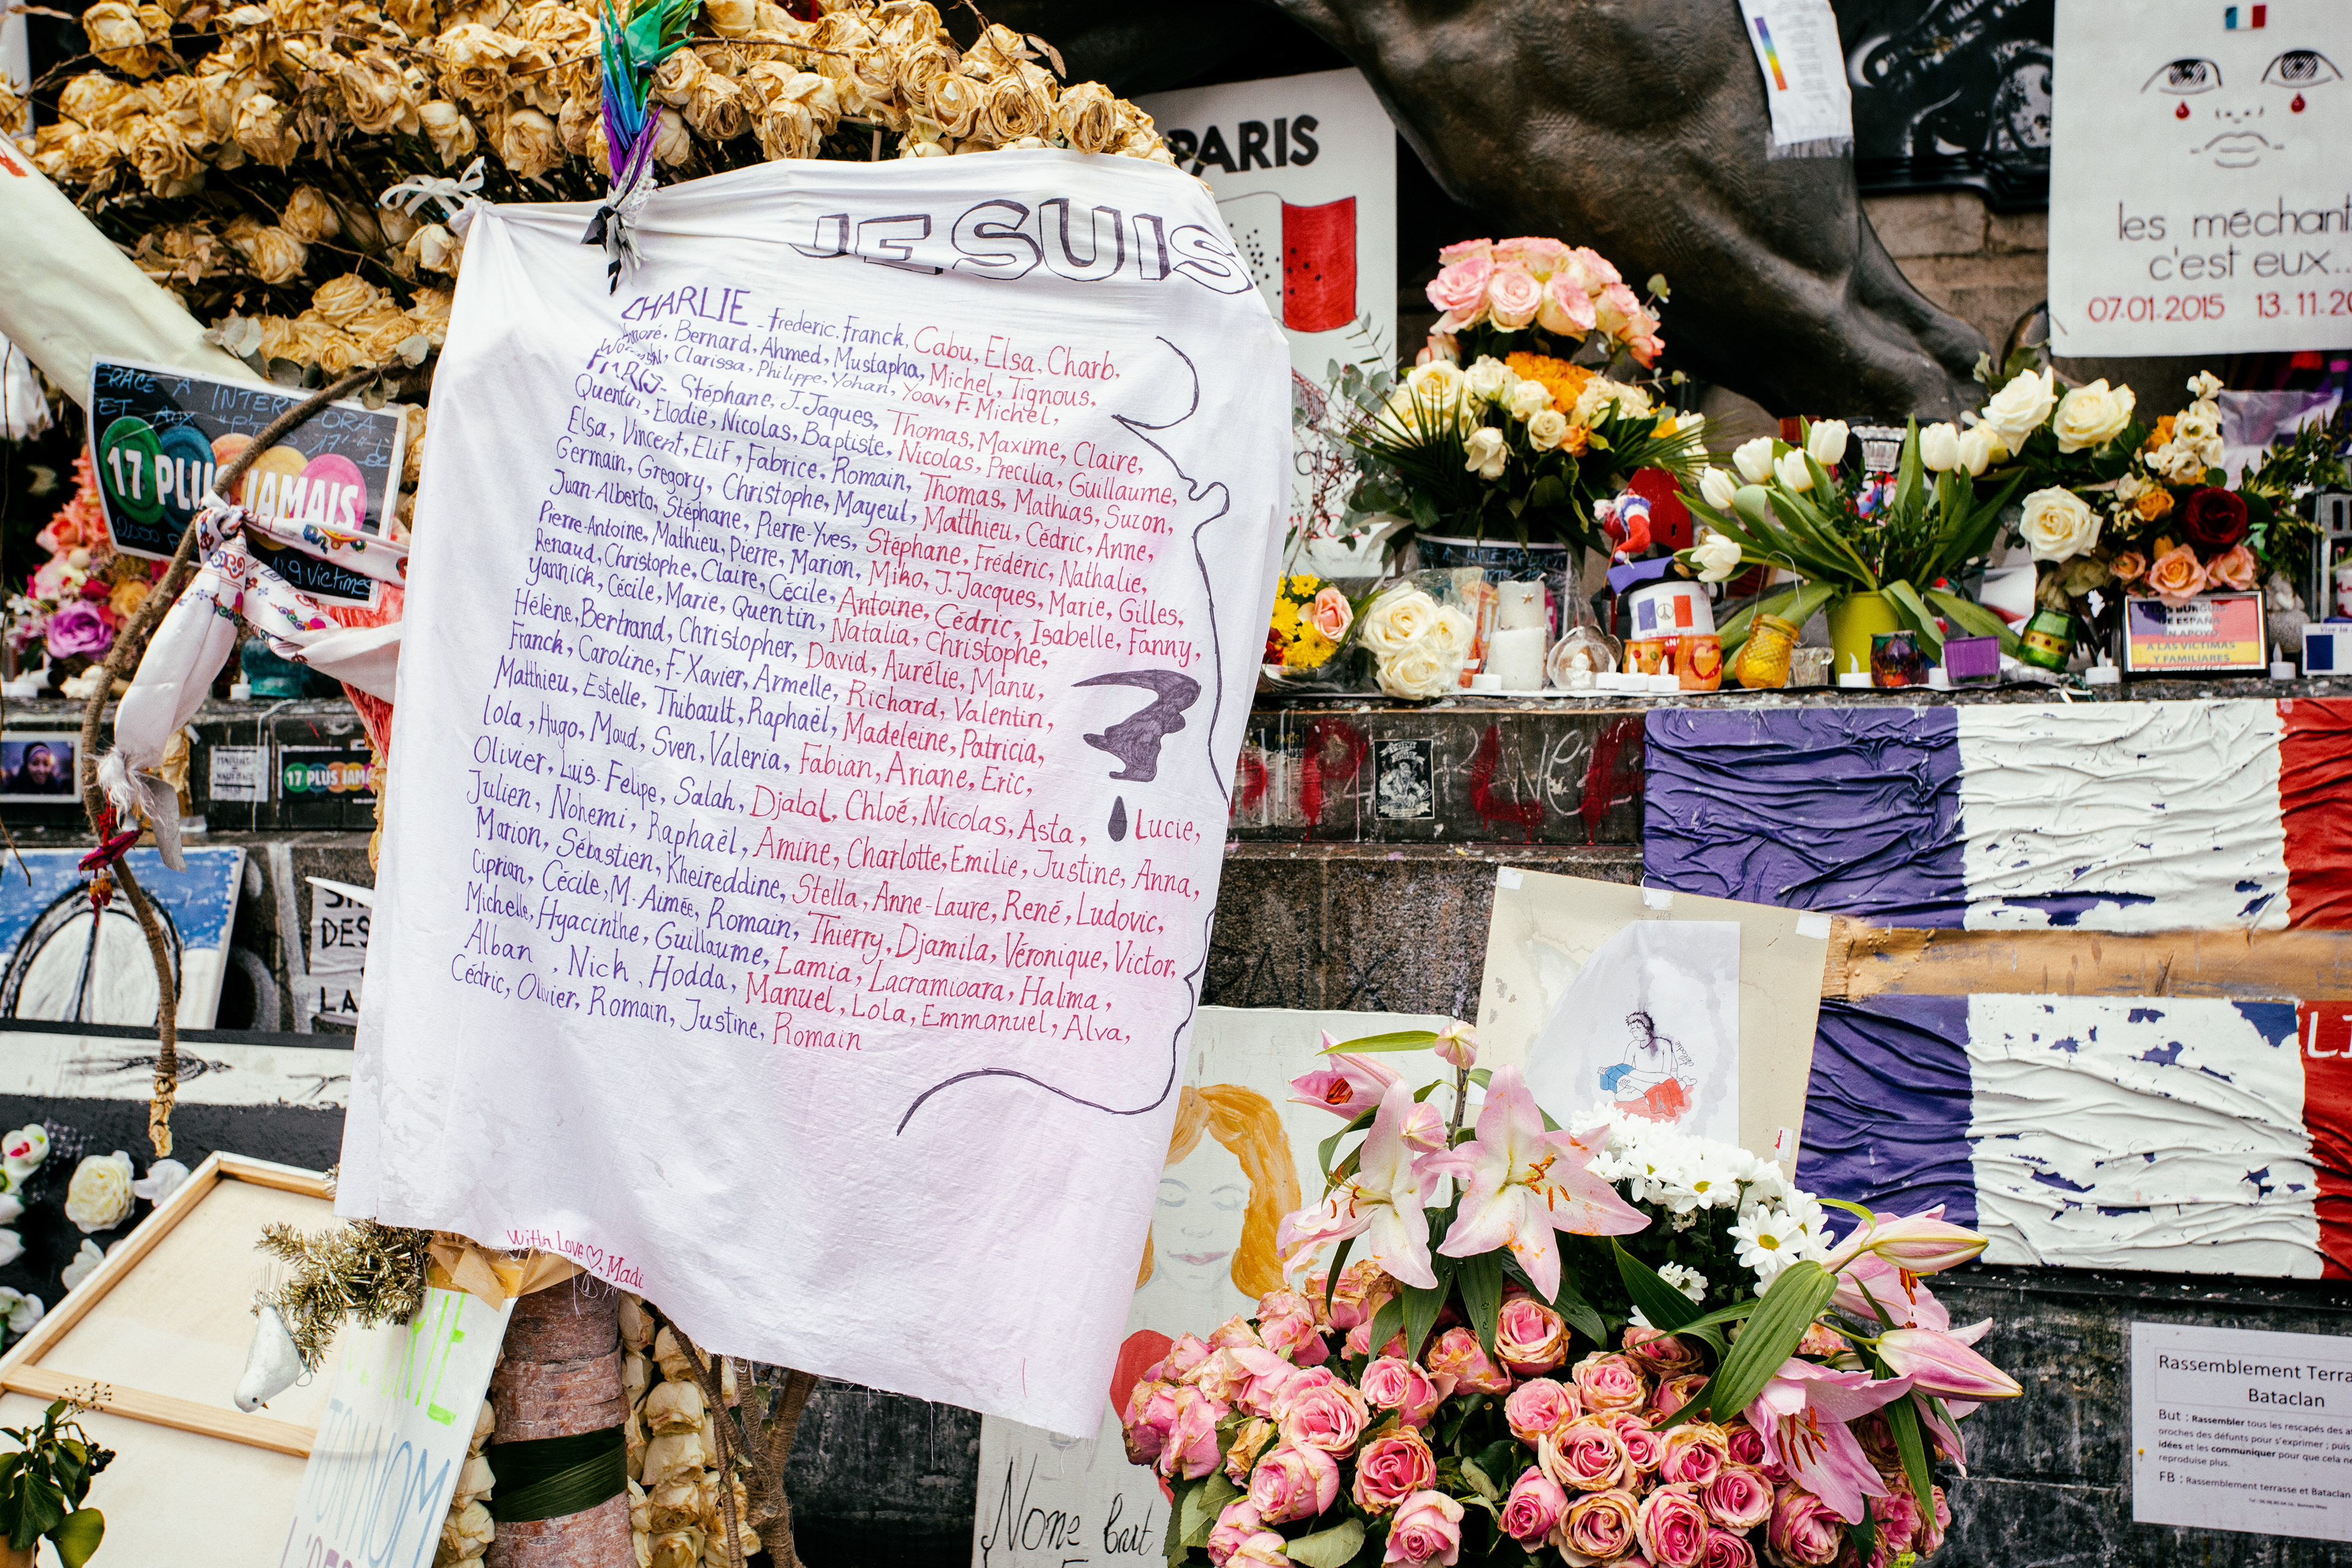 JE SUIS
CHARLIE - Frederic. Franck, Cabu, Elsa, Charb,
Honoré, Bernard, Ahmed, Mustapha, Michel, Tignous,
Clarissa, Philippe, Yohan, Yoav, F. Michel,
PARIS - Stéphane, J-Jaques, Thomas, Maxime, Claire,
Quentin, Elodie, Nicolas, Baptiste, Nicolas, Precilia, Guillaume,
Elsa, Vincent, Elif, Fabrice, Romain, Thomas, Mathias, Suzon,
Germain, Gregory, Christophe, Mayeul, Matthieu, Cédric, Anne,
Juan-Alberto, Stéphane, Pierre-Yves, Stéphane, Frédéric, Nathalie,
Pierre-Antoine, Mathieu, Pierre, Marion, Miko, J. Jacques, Marie, Gilles,
Renaud, Christophe, Claire, Cécile, Antoine, Cédric, Isabelle, Fanny,
Yannick, Cécile, Marie, Quentin, Natalia, Christophe,
Hélène, Bertrand, Christopher, David, Aurélie, Manu,
Franck, Caroline, F-Xavier, Armelle, Richard, Valentin,
Matthieu, Estelle, Thibault, Raphaël, Madeleine, Patricia,
Lola, Hugo, Maud, Sven, Valeria, Fabian, Ariane, Eric,
Olivier, Luis-Felipe, Salah, Djalal, Chloé, Nicolas, Asta, Lucie,
Julien, Nohemi, Raphaël, Amine, Charlotte, Emilie, Justine, Anna,
Marion, Sébastien, Kheireddine, Stella, Anne-Laure, René, Ludovic,
Ciprian, Cécile, M. Aimée, Romain, Thierry, Djamila, Véronique, Victor,
Michelle, Hyacinthe, Guillaume, Lamia, Lacramioara, Halima,
Alban, Nick, Hodda, Manuel, Lola, Emmanuel, Alva,
Cédric, Olivier, Romain, Justine, Romain
With Love ♡, Madi
PARIS
les méchant
c'est eux...
07.01.2015 13.11.2
GRACE A INTER
ET AUX
17 PLUS JAMAIS
149 Victimes
17 PLUS JAMA
DES
LA
DE ESPAÑA
EN APOYO
A LAS VICTIMAS
Y FAMILIARES
None but
Rassemblement Terra
Bataclan
But : Rassembler tous les rescapés des a
proches des défunts pour s'exprimer ; puis
idées et les communiquer pour que cela ne
reproduise plus.
FB : Rassemblement terrasse et Bataclan